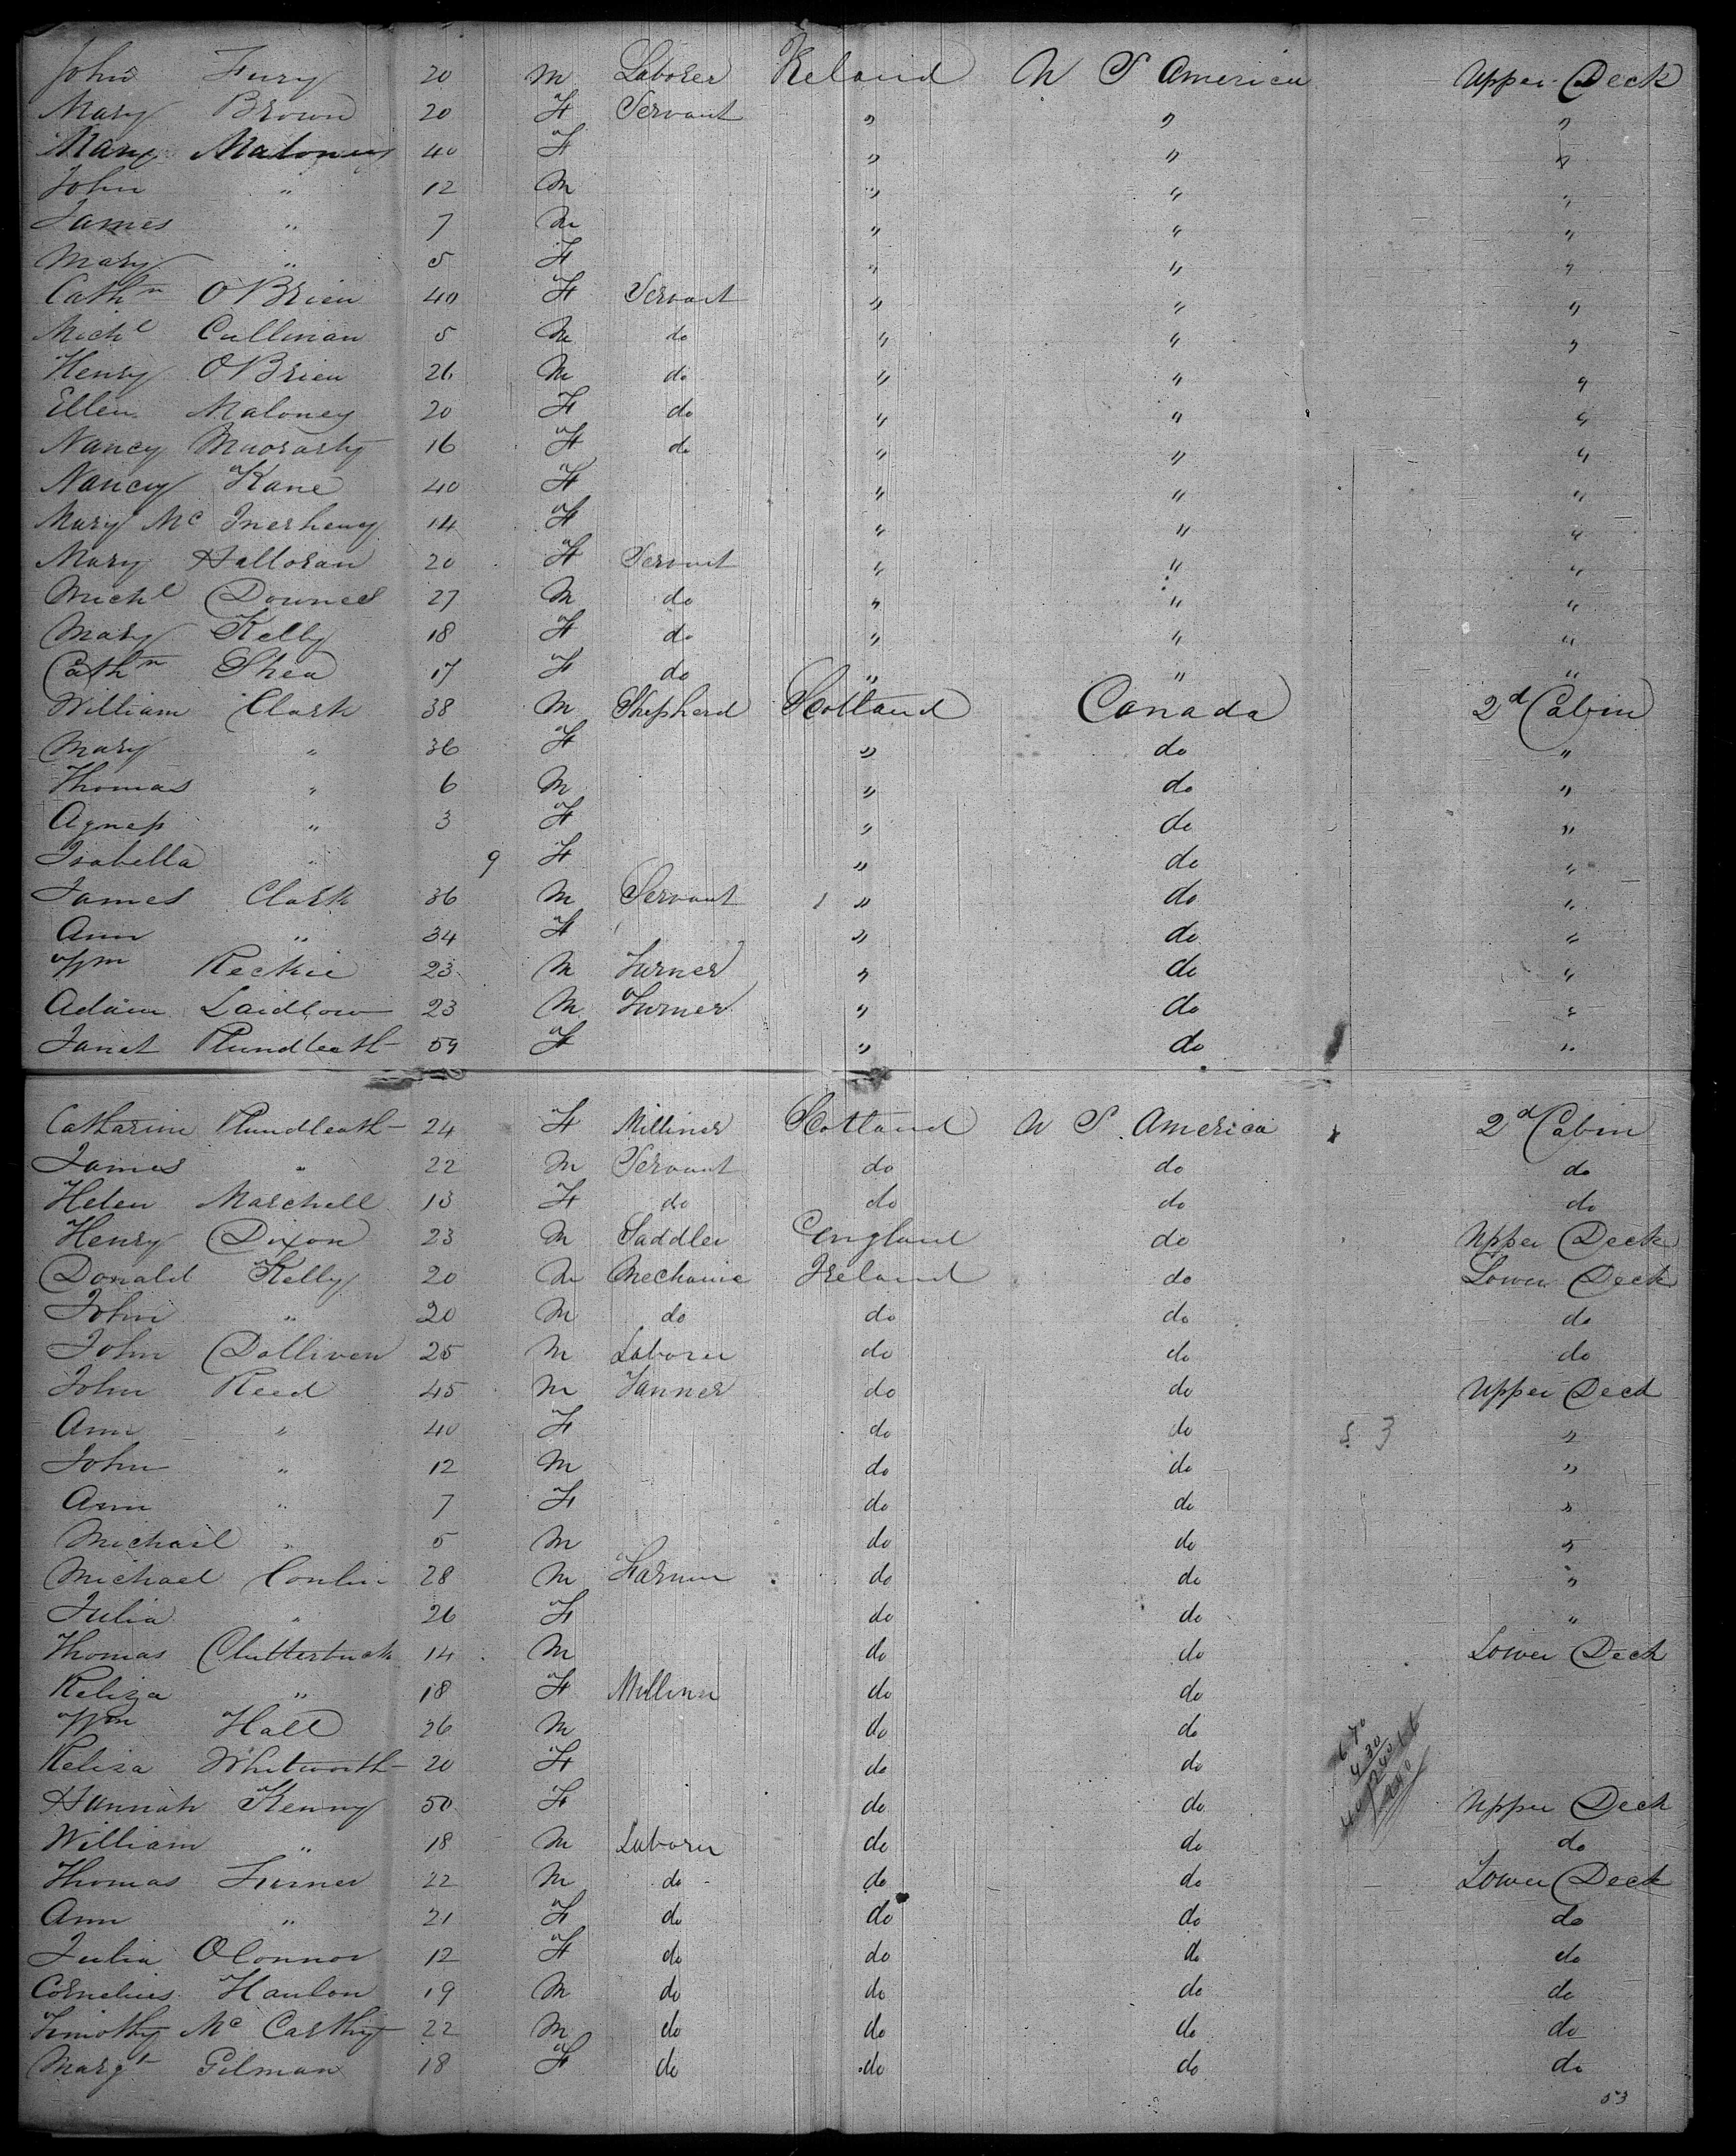 John Fury 20 M Laborer Ireland U S America Upper Deck
Mary Brown 20 F Servant " " "
Mary Maloney 40 F " " "
John " 12 M " " "
James " 7 M " " "
Mary " 5 F " " "
Cathn O'Brien 40 F Servant " " "
Michl Cullinan 5 M do " " "
Henry O'Brien 26 M do " " "
Ellen Maloney 20 F do " " "
Nancy 16 F do " " "
Nancy Kane 40 F " " "
Mary Mc Inerheny 14 F " " "
Mary Halloran 20 F Servant " " "
Michl Downes 27 M do " " "
Mary Kelly 18 F do " " "
Cathn Shea 17 F do " " "
William Clark 38 M Shepherd Scotland Canada 2d Cabin
Mary " 36 F " do "
Thomas " 6 M " do "
Agness " 3 F " do "
Isabella " 9 F " do "
James Clark 36 M Servant " do "
Ann " 34 F " do "
Wm Reckie 23 M Turner " do "
Adam Laidlow 23 M Turner " do "
Janet 59 F " do "
Catharine 24 F Milliner Scotland U S America 2d Cabin
James " 22 M Servant do do do
Helen Marchell 13 F do do do do
Henry Dixon 23 M Saddler England do Upper Deck
Donald Kelly 20 M Mechanic Ireland do Lower Deck
John " 20 M do do do do
John Dolliven 25 M Laborer do do do
John Reed 45 M Tanner do do Upper Deck
Ann " 40 F do do "
John " 12 M do do "
Ann " 7 F do do "
Michael " 5 M do do "
Michael Conlin 28 M Farmer do do "
Julia " 26 F do do "
Thomas Clutterbuck 14 M do do Lower Deck
Eliza " 18 F Milliner do do
Wm Hall 26 M do do
Eliza Whitworth 20 F do do
Hannah Kenny 50 F do do Upper Deck
William " 18 M Laborer do do do
Thomas Turner 22 M do do do Lower Deck
Ann " 21 F do do do do
Julia O'Connor 12 F do do do do
Cornelius Hanlon 19 M do do do do
Timothy Mc Carthy 22 M do do do do
Margt Gilman 18 F do do do do
53